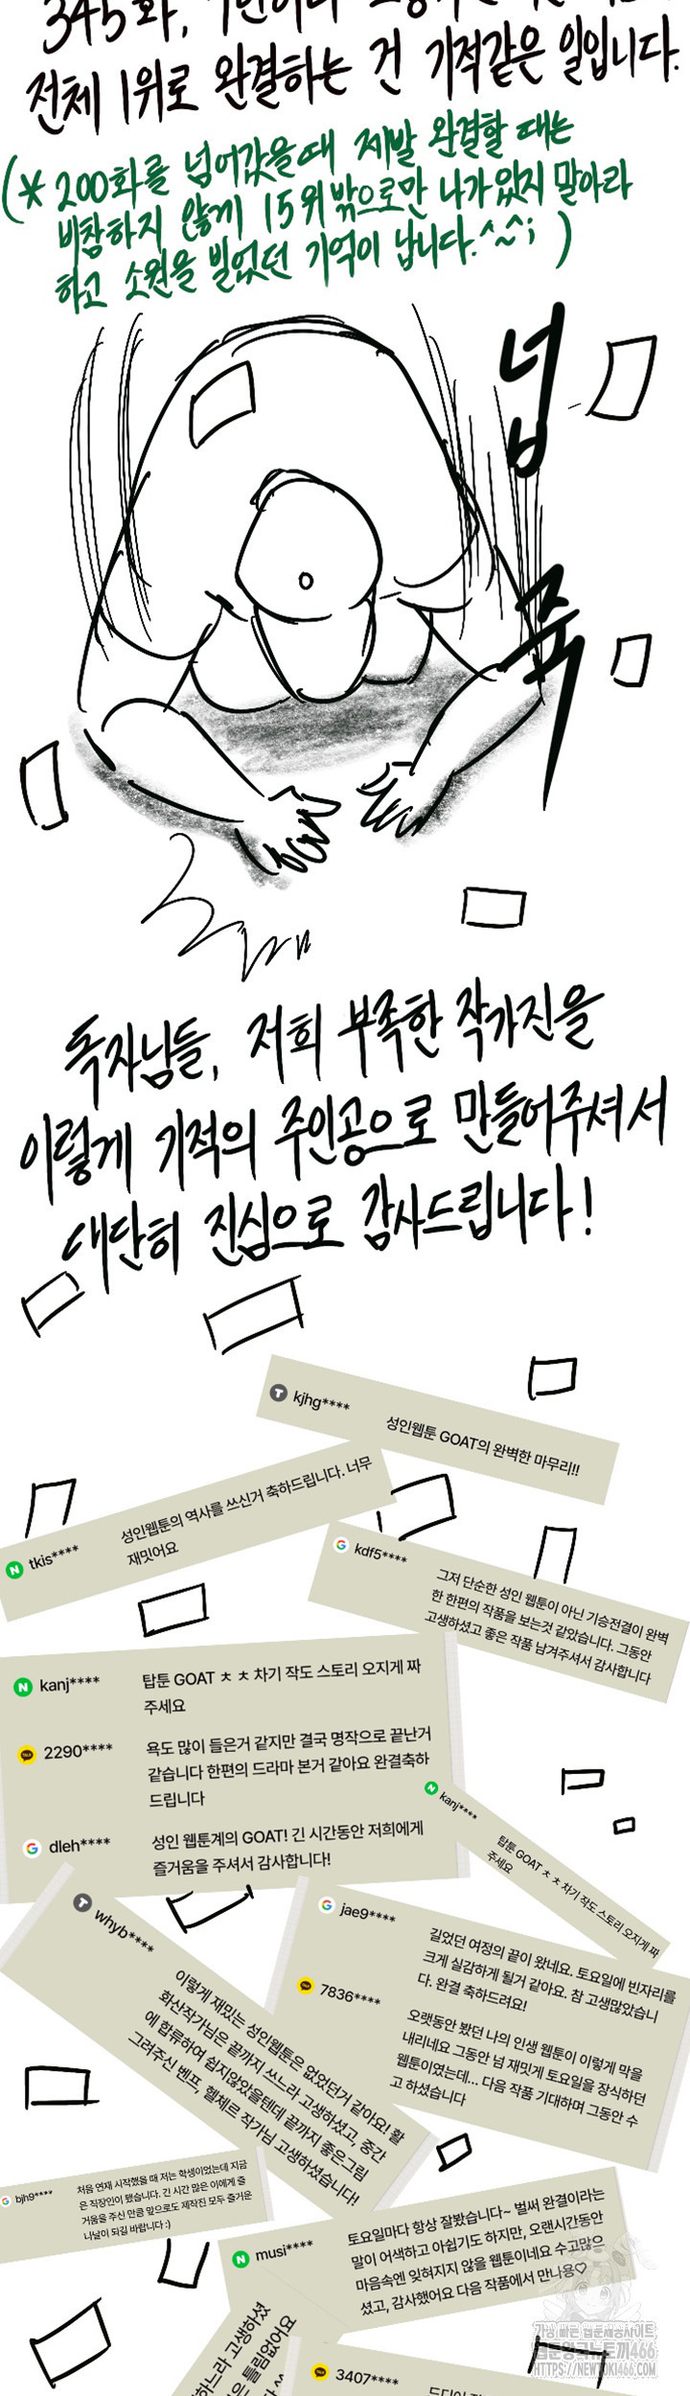 345화,
전체 1위로 완결하는 건 기적같은 일입니다.
(* 200화를 넘어갔을때 제발 완결할 때는
비참하지 않게 15위 밖으로만 나가있지 말아라
하고 소원을 빌었던 기억이 납니다.^~^; )
넙
죽
독자님들, 저희 부족한 작가진을
이렇게 기적의 주인공으로 만들어주셔서
대단히 진심으로 감사드립니다!
kjhg****
성인웹툰 GOAT의 완벽한 마무리!!
tkis****
성인웹툰의 역사를 쓰신거 축하드립니다. 너무
재밋어요
kdf5****
그저 단순한 성인 웹툰이 아닌 기승전결이 완벽
한 한편의 작품을 보는것 같았습니다. 그동안
고생하셨고 좋은 작품 남겨주셔서 감사합니다
kanj****
탑툰 GOAT ㅊㅊ 차기 작도 스토리 오지게 짜
주세요
2290****
욕도 많이 들은거 같지만 결국 명작으로 끝난거
같습니다 한편의 드라마 본거 같아요 완결축하
드립니다
dleh****
성인 웹툰계의 GOAT! 긴 시간동안 저희에게
즐거움을 주셔서 감사합니다!
kanj****
탑툰 GOAT ㅊㅊ 차기 작도 스토리 오지게 짜
주세요
whyb****
이렇게 재밌는 성인웹툰은 없었던거 같아요! 활
화산작가님은 끝까지 쓰느라 고생하셨고, 중간
에 합류하여 쉽지않았을텐데 끝까지 좋은그림
그려주신 벤프, 헬체르 작가님 고생하셨습니다!
jae9****
길었던 여정의 끝이 왔네요. 토요일에 빈자리를
크게 실감하게 될거 같아요. 참 고생많았습니
다. 완결 축하드려요!
7836****
오랫동안 봤던 나의 인생 웹툰이 이렇게 막을
내리네요 그동안 넘 재밋게 토요일을 장식하던
웹툰이였는데... 다음 작품 기대하며 그동안 수
고 하셨습니다
bjh9****
처음 연재 시작했을 때 저는 학생이었는데 지금
은 직장인이 됐습니다. 긴 시간 많은 이에게 즐
거움을 주신 만큼 앞으로도 제작진 모두 즐거운
나날이 되길 바랍니다 :)
musi****
토요일마다 항상 잘봤습니다~ 벌써 완결이라는
말이 어색하고 아쉽기도 하지만, 오랜시간동안
마음속엔 잊혀지지 않을 웹툰이네요 수고많으
셨고, 감사했어요 다음 작품에서 만나용♡
하느라 고생하셨
들림없어요
3407****
가장 빠른 웹툰제공사이트
웹툰왕국뉴토끼466
HTTPS://NEWTOKI466.COM